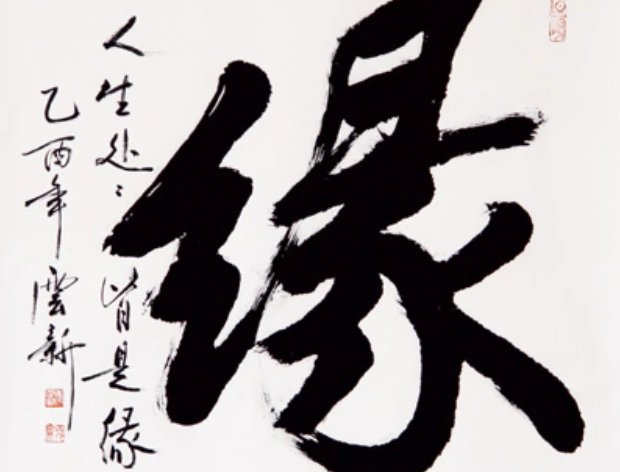 缘
人生处〻皆是缘
乙酉年
雲新